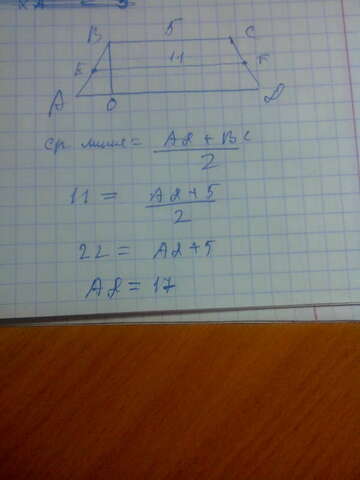 B 5 C
E 11 F
A O D
ср. линия = AD + BC / 2
11 = AD + 5 / 2
22 = AD + 5
AD = 17